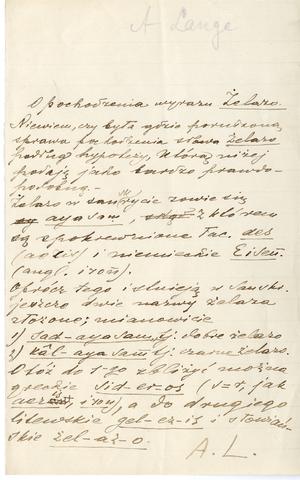 A Lange
O pochodzeniu wyrazu Żelazo.
Niewiem, czy była gdzie poruszona
sprawa pochodzenia słowa żelazo
podług hypotezy, którą niżej
podaję jako bardzo prawdo-
podobną. -
Żelazo w sanskrycie zowie się
ayasam, z którem
są spokrewnione łac. aes
(aeris) i niemieckie Eisen
(ang. iron).
Oprócz tego istnieją w Sanskr.
jeszcze dwie nazwy żelaza
złożone; mianowicie
1) sad-ayasam tj. dobre żelazo
2) kâl-ayasam tj. czarne żelazo.
Otóż do 1-go zbliżyć można
greckie sid-er-os (s=r, jak
aer, iron), a do drugiego
litewskie gel-ez-is i słowiań-
skie żel-az-o.
A. L.